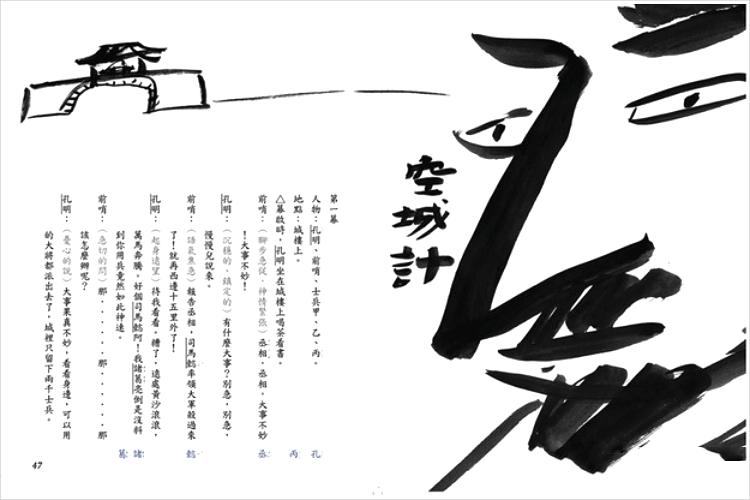 空城計
第一幕
人物：孔明、前哨、士兵甲、乙、丙。
地點：城樓上。
△幕啟時，孔明坐在城樓上喝茶看書。
前哨：（腳步急促、神情緊張）丞相，丞相，大事不妙
！大事不妙！
孔明：（沉穩的、鎮定的）有什麼大事？別急，別急，
慢慢兒說來。
前哨：（語氣焦急）報告丞相，司馬懿率領大軍殺過來
了！就再西邊十五里外了！
孔明：（起身遠望）待我看看。糟了，遠處黃沙滾滾，
萬馬奔騰。好個司馬懿阿！我諸葛亮倒是沒料
到你用兵竟然如此神速。
前哨：（急切的問）那．．．．．．那．．．．．．那
該怎麼辦呢？
孔明：（憂心的說）大事果真不妙，看看身邊，可以用
的大將都派出去了，城裡只留下兩千士兵。
孔
丙
丞
懿
諸
葛
47